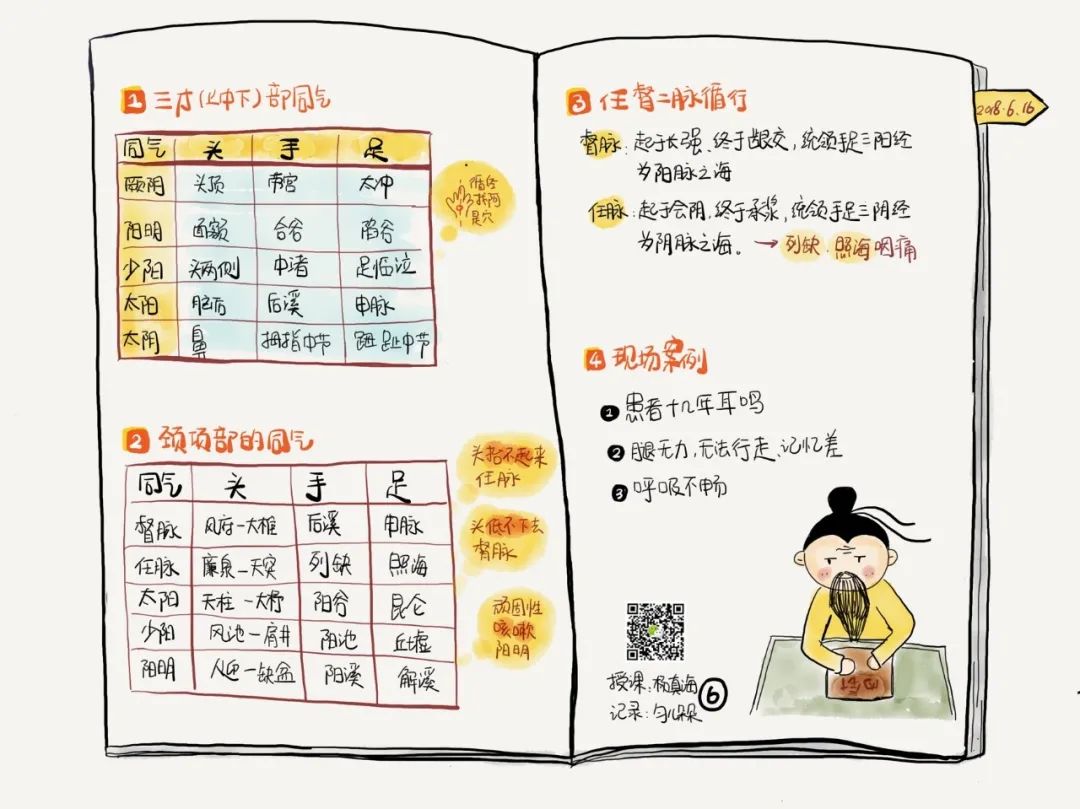 1 三才(上中下)部同气
同气 头 手 足
厥阴 头顶 劳宫 太冲
阳明 面额 合谷 陷谷
少阳 头两侧 中渚 足临泣
太阳 脑后 后溪 申脉
太阴 鼻 拇指中节 踇趾中节
循经
找阿
是穴
2 颈项部的同气
同气 头 手 足
督脉 风府一大椎 后溪 申脉
任脉 廉泉一天突 列缺 照海
太阳 天柱一大杼 阳谷 昆仑
少阳 风池一肩井 阳池 丘墟
阳明 人迎一缺盆 阳溪 解溪
头抬不起来
任脉
头低不下去
督脉
顽固性
咳嗽
阳明
2018.6.16
3 任督二脉循行
督脉:起于长强、终于龈交,统领手足三阳经
为阳脉之海
任脉:起于会阴,终于承浆,统领手足三阴经
为阴脉之海。→列缺.照海咽痛
4 现场案例
1 患者十几年耳鸣
2 腿无力,无法行走、记忆差
3 呼吸不畅
授课:杨真海
记录:匀儿朵朵
6